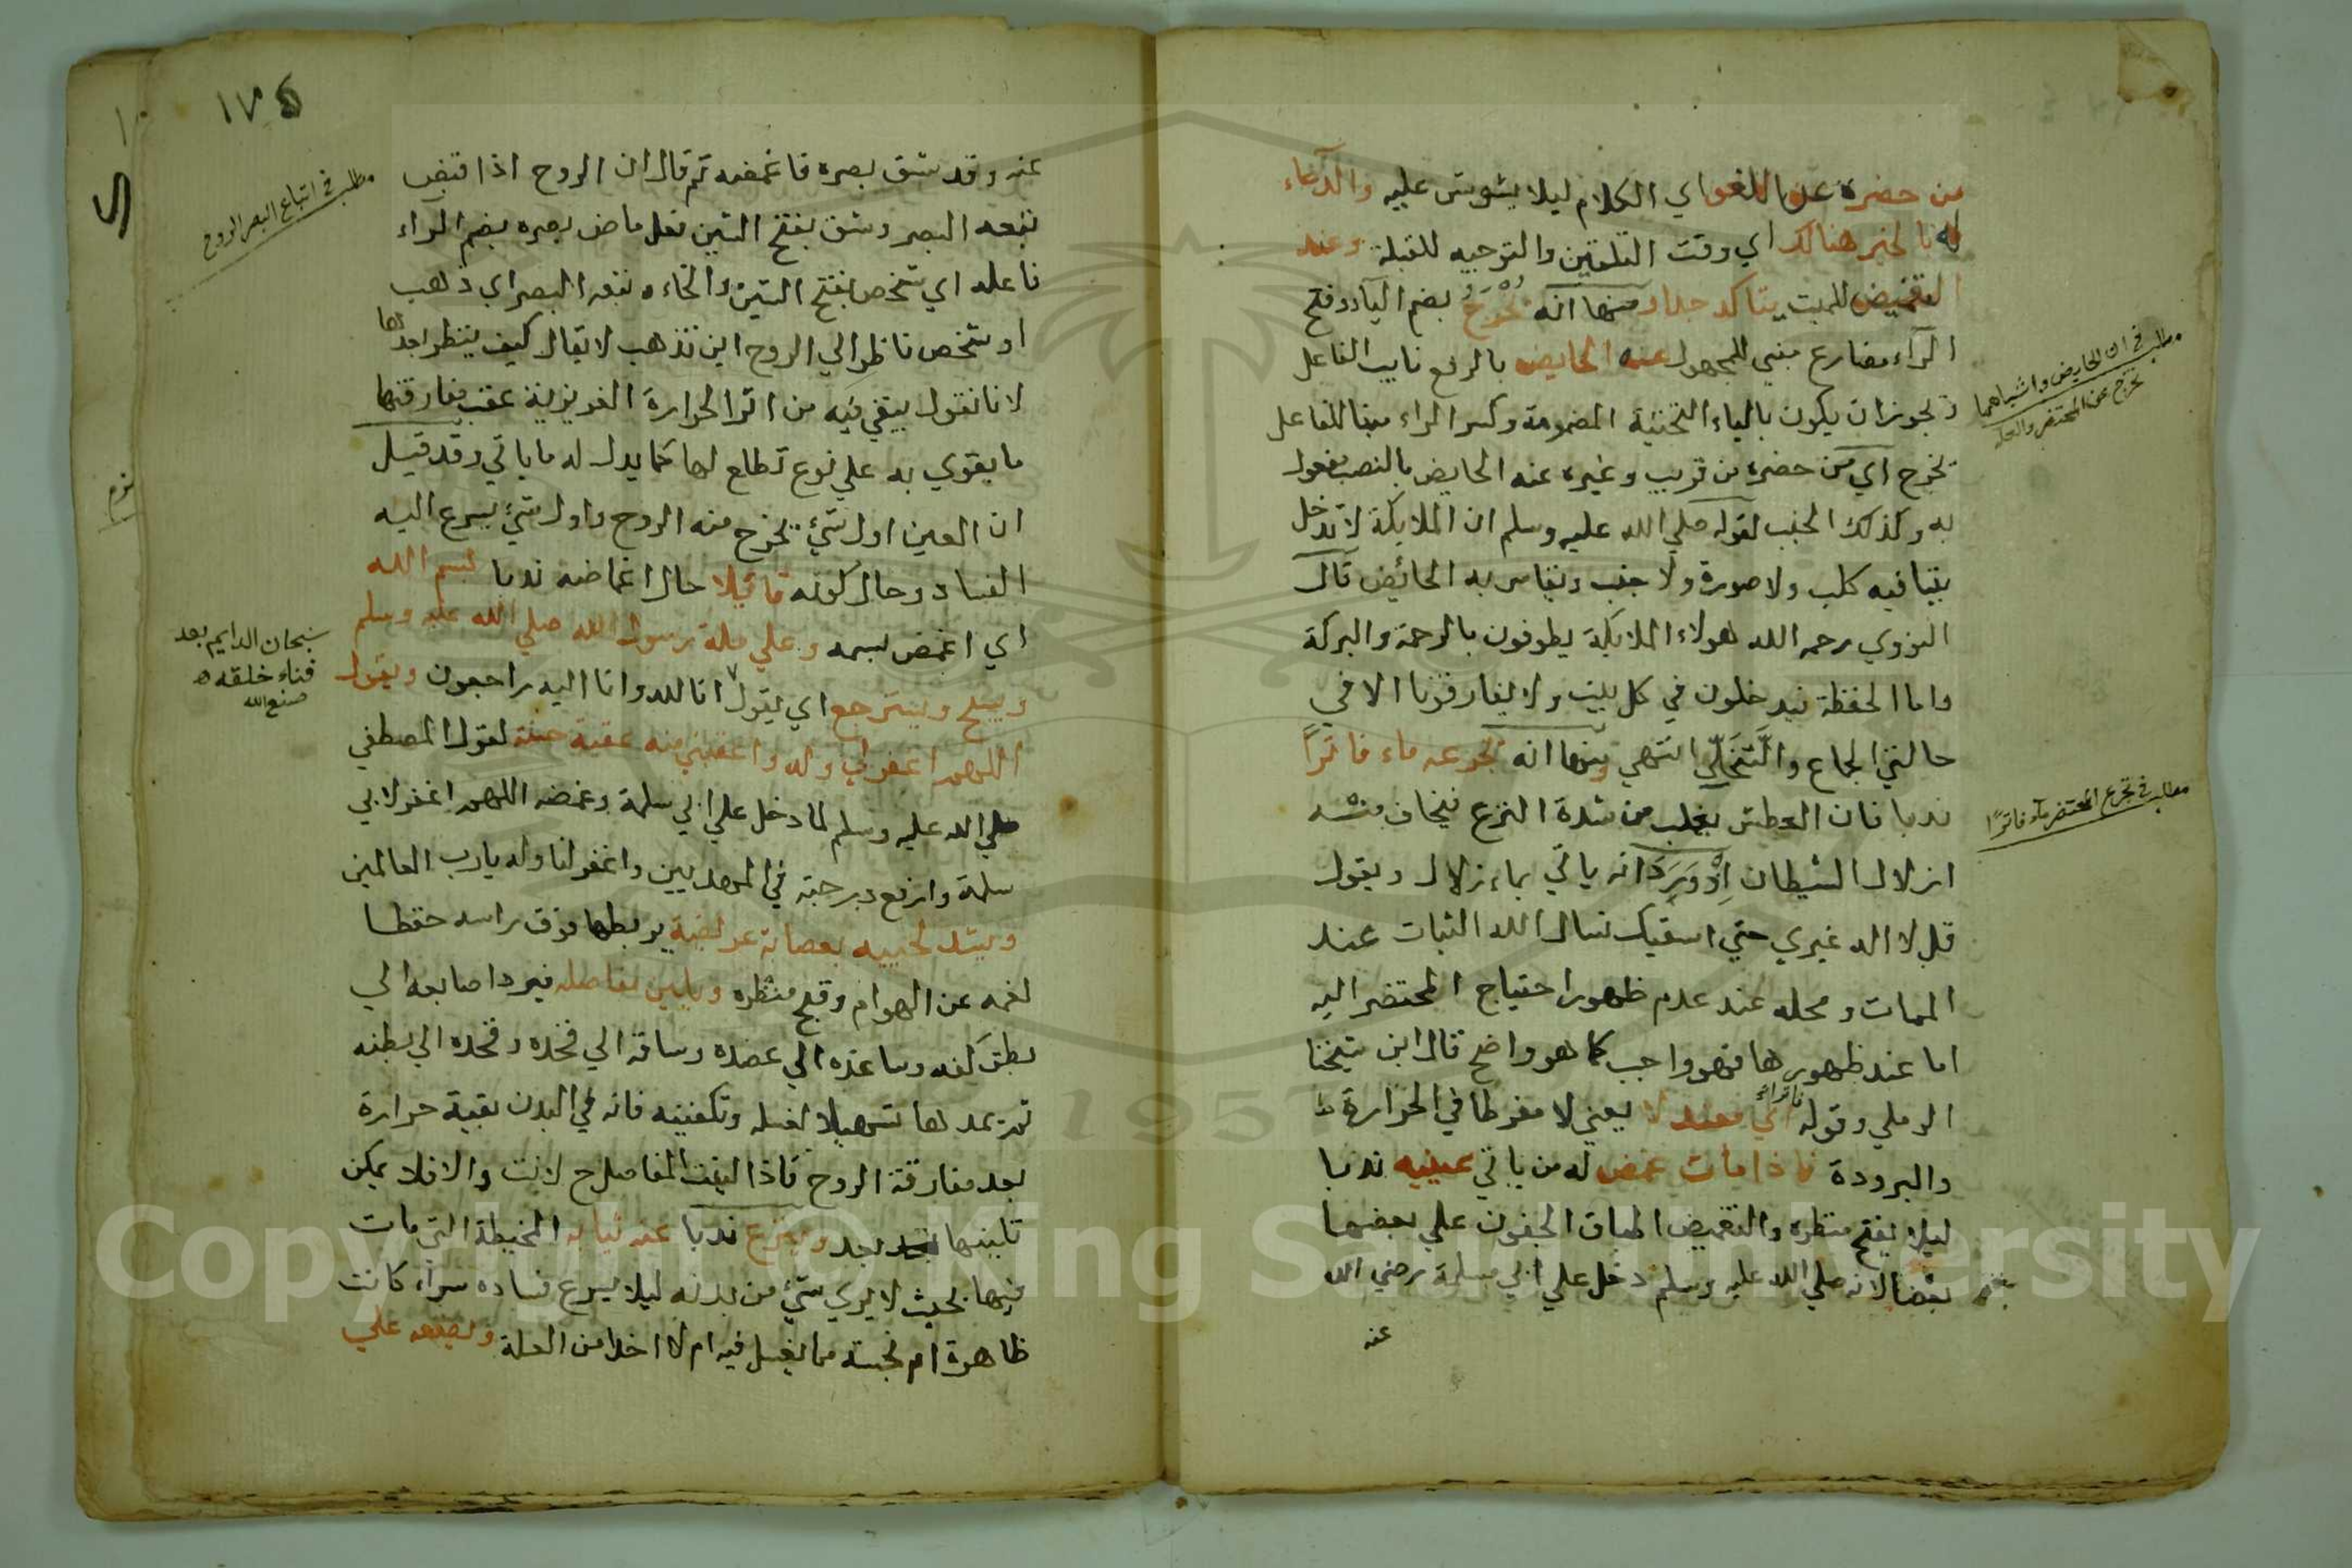 من حضره عن اللغو اي الكلام ليلا يشوش عليه والدعاء
له بالخير هنالك اي وقت التلقين والتوجيه للقبلة وعند
التغميض للميت يتاكد جدا ومنها انه يُخرَجُ بضم الياء وفتح
الراء مضارع مبني للمجهول عنه الحايض بالرفع نايب الفاعل
ويجوز ان يكون بالياء التحتية المضمومة وكسر الراء مبنيا للفاعل
يخرج اي من حضره من قريب وغيره عنه الحايض بالنصب مفعول
به وكذلك الجنب لقوله صلي الله عليه وسلم ان الملايكة لا تدخل
بيتا فيه كلب ولا صورة ولا جنب ويقاس به الحائض قال
النووي رحمه الله هولاء الملايكة يطوفون بالرحمة والبركة
واما الحفظة فيدخلون في كل بيت ولا يفارقونا الا في
حالتي الجماع والتَّخَلّي انتهي ومنها انه يجرعه ماء فاترًا
ندبا فان العطش يغلب من شدة النزع فيخاف منه
ازلال الشيطان اِذْ وَرَدَ انه ياتي بماء زلال ويقول
قل لا اله غيري حتي اسقيك نسال الله الثبات عند
الممات ومحله عند عدم ظهور احتياج المحتضر اليه
اما عند ظهورها فهو واجب كما هو واضح قال ابن شيخنا
الرملي وقوله فاترًا اي معتدلا يعني لا مفرطا في الحرارة
والبرودة فاذا مات غمض له من ياتي عينيه ندبا
ليلا يقبح منظره والتغميض اطباق الجفون علي بعضها
بعضا لانه صلي الله عليه وسلم دخل علي ابي سلمة رضي الله
عنه
مطلب في ان الحايض واشباهها
تخرج عن المحتضر
مطلب في تجرع المحتضر ماء فاترًا
١٧٥
عنه وقد شق بصره فاغمضه ثم قال ان الروح اذا قبض
تبعه البصر وشق بفتح الشين فعل ماض بصره بضم الراء
فاعله اي شخص بفتح الشين والخاء وتبعه البصر اي ذهب
او شخص ناظرا الي الروح اين تذهب لا يقال كيف ينظر بعدها
لانا نقول يبقي فيه من اثر الحرارة الغريزية عقب مفارقتها
ما يقوي به علي نوع تطلع لها كما يدل له ما ياتي وقد قيل
ان العين اول شيء تخرج منه الروح واول شيء يسرع اليه
الفساد وحال كونه قائلا حال اغماضه ندبا بسم الله
اي اغمض بسمه وعلي ملة رسول الله صلي الله عليه وسلم
ويسترجع اي يقول انا لله وانا اليه راجعون ويقول
اللهم اغفر لي وله واعقبني منه عقبة حسنة لقول المصطفي
صلي الله عليه وسلم لما دخل علي ابي سلمة وغمضه اللهم اغفر لابي
سلمة وارفع درجته في المهديين واغفر لنا وله يا رب العالمين
ويشد لحييه بعصابة عريضة يربطها فوق راسه حفظا
لفمه عن الهوام وقبح منظره ويلين مفاصله فيرد اصابعه الي
بطن كفه وساعده الي عضده وساقه الي فخذه وفخذه الي بطنه
ثم يمدها تسهيلا لغسله وتكفينه فانه في البدن بقية حرارة
بعد مفارقة الروح فاذا لينت المفاصل ح لانت والا فلا يمكن
تليينها بعد وينزع ندبا عنه ثيابه المخيطة التي مات
فيها بحيث لا يري شيء من بدنه ليلا يسرع فساده سواء كانت
طاهرة ام نجسة مما يغسل فيه ام لا اخذا من العلة ويضعه علي
مطلب في اتباع البصر الروح
سبحان الدايم بعد
فناء خلقه
صنع الله